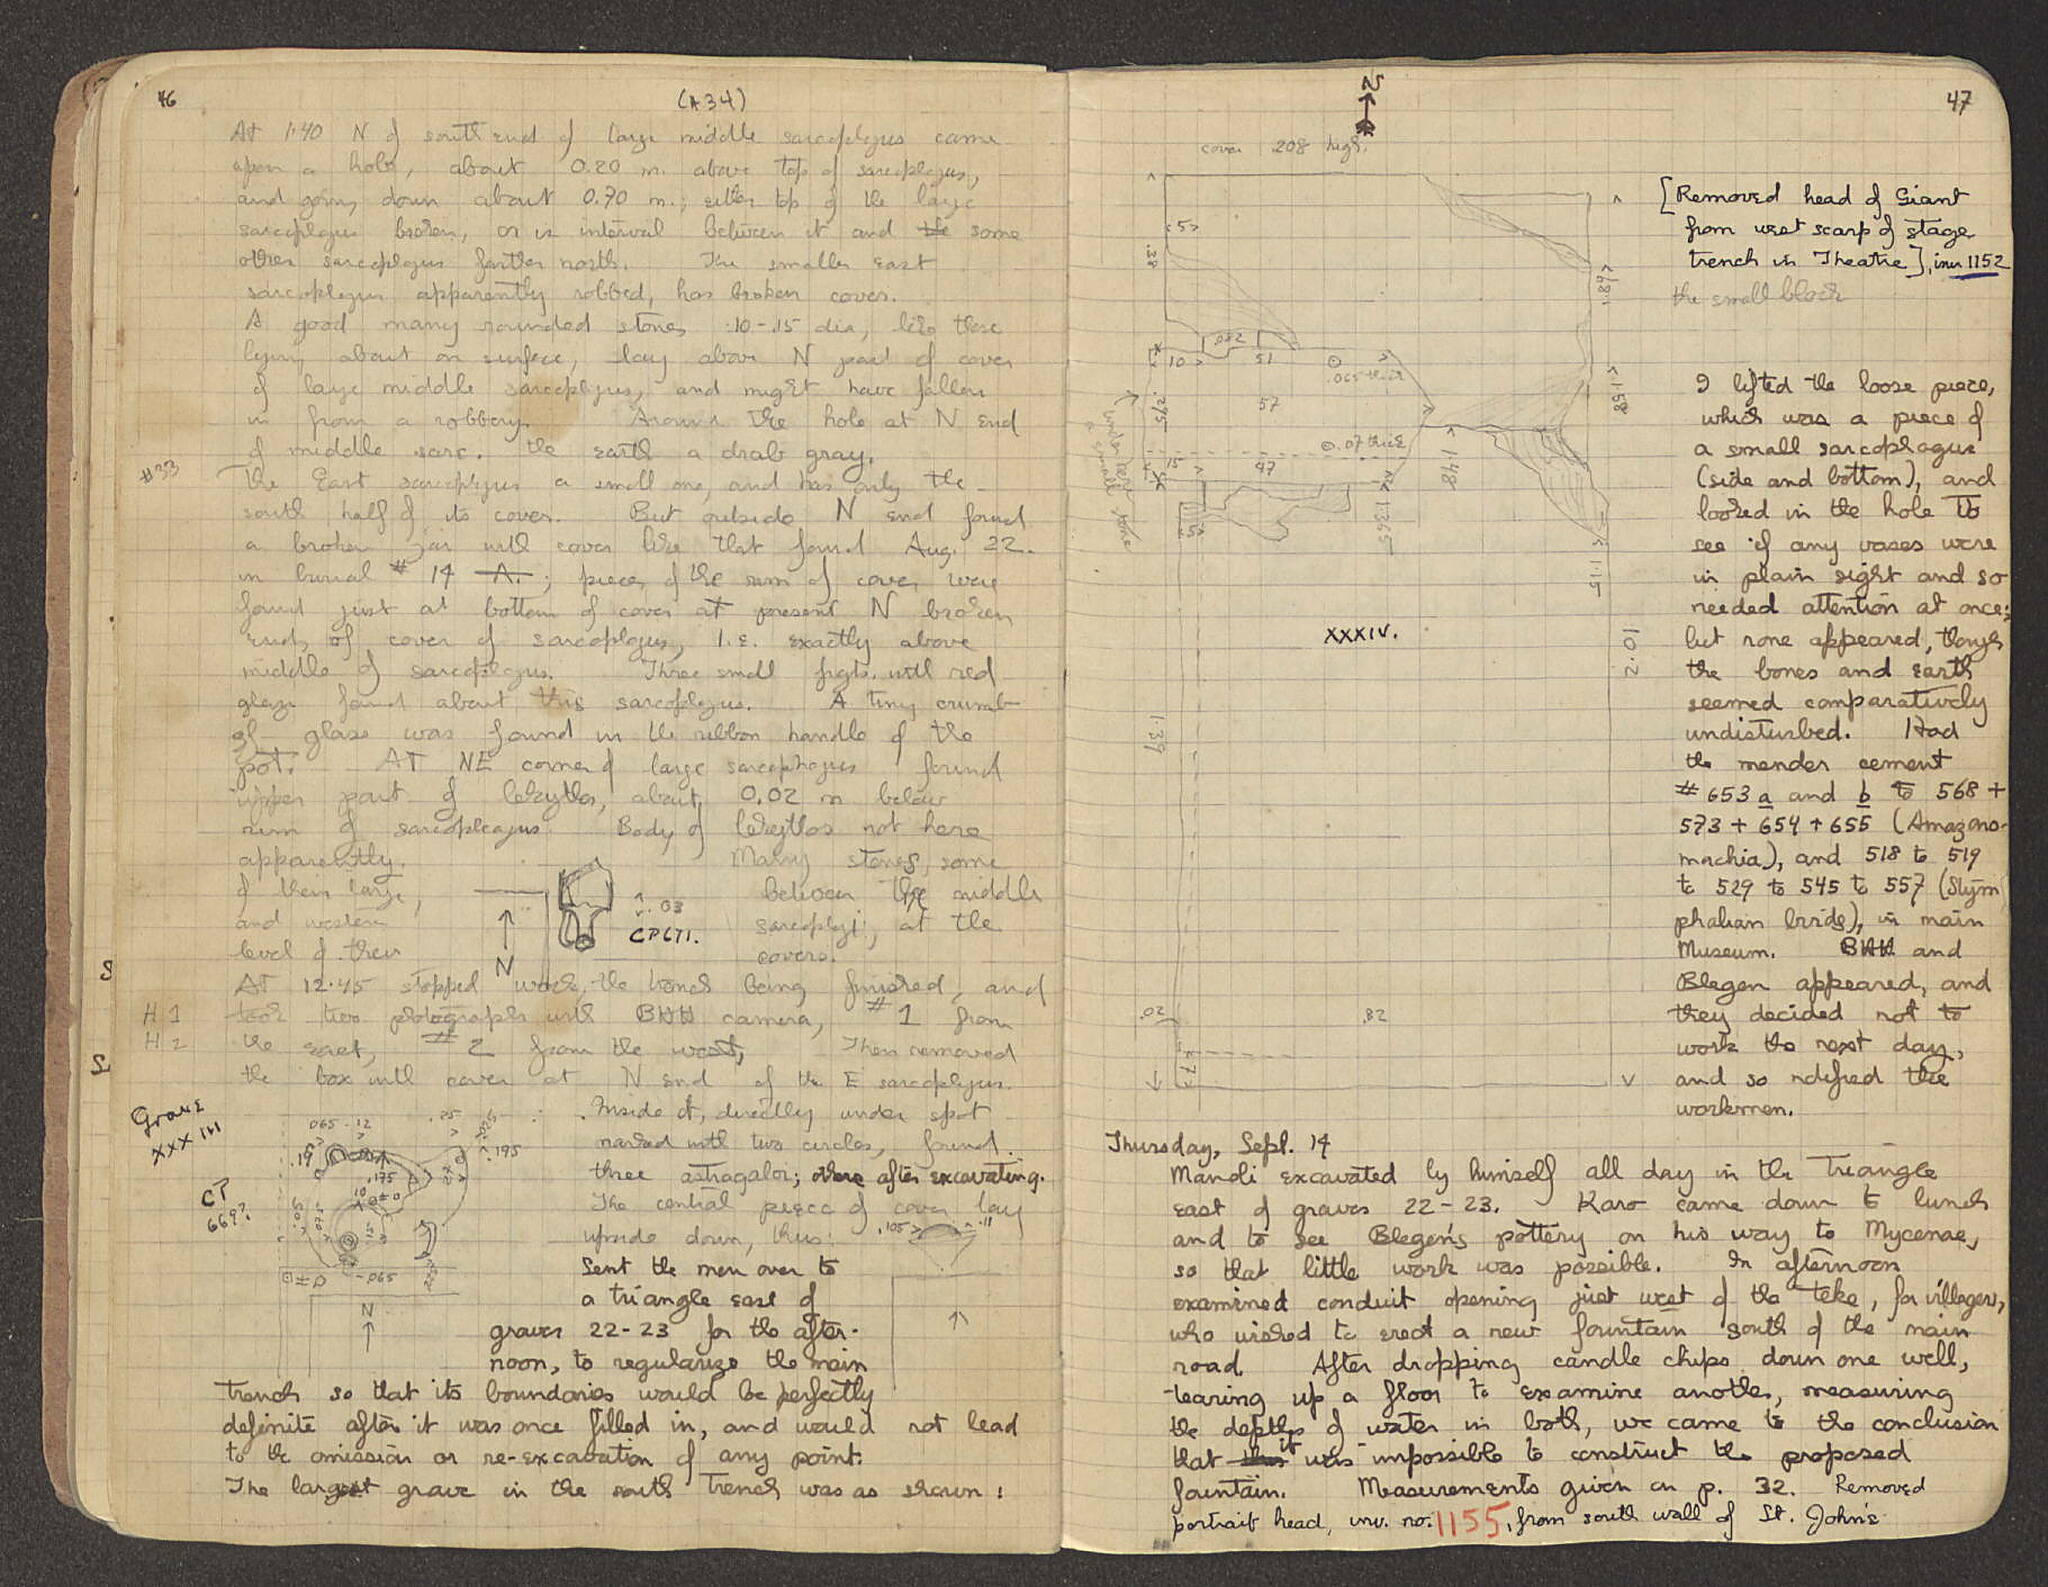 46
(A34)
At 1.40 N of south end of large middle sarcophagus came
upon a hole, about 0.20 m. above top of sarcophagus,
and going down about 0.70 m.; either top of the large
sarcophagus broken, or in interval between it and the some
other sarcophagus farther north. The smaller east
sarcophagus apparently robbed, has broken cover.
A good many rounded stones .10-.15 dia, like those
lying about on surface, lay above N part of cover
of large middle sarcophagus, and might have fallen
in from a robbery. Around the hole at N end
of middle sarc. the earth a drab gray.
#33
The East sarcophagus a small one, and has only the
south half of its cover. But outside N end found
a broken jar with cover like that found Aug. 22.
in burial # 14 A.; pieces of the rim of cover were
found just at bottom of cover at present N broken
end, of cover of sarcophagus, I.E. exactly above
middle of sarcophagus. Three small frgts. with red
glaze found about this sarcophagus. A tiny crumb
of glass was found in the ribbon handle of the
pot. At NE corner of large sarcophagus found
upper part of lekythos, about 0.02 m below
rim of sarcophagus. Body of lekythos not here
apparently. Many stones, some
of them large, between the middle
and western sarcophagi, at the
level of their covers.
N
.03
CP671.
At 12.45 stopped work, the trench being finished, and
H 1
took two photographs with BHH camera, # 1 from
H 2
the east, # 2 from the west, Then removed
the box with cover at N end of the E sarcophagus.
Grave
XXXIII
CP
669?.
Inside it, directly under spot
marked with two circles, found
three astragaloi; others after excavating.
The central piece of cover lay
upside down, thus:
.065 .12
.25
.195
.19
.175
.10
±0
.065
N
.105
.11
Sent the men over to
a triangle east of
graves 22-23 for the after-
noon, to regularize the main
trench so that its boundaries would be perfectly
definite after it was once filled in, and would not lead
to the omission or re-excavation of any point.
The largest grave in the south trench was as shown:
47
N
cover .208 high.
.5
.38
.082
10
51
.065 thick
.295
57
.07 thick
15
47
under here a small stone
1.48
1.365
1.87
1.58
1.15
2.01
XXXIV.
1.39
.02
.82
.17
[Removed head of Giant
from west scarp of stage
trench in Theatre], inv 1152
the small block
I lifted the loose piece,
which was a piece of
a small sarcophagus
(side and bottom), and
looked in the hole to
see if any vases were
in plain sight and so
needed attention at once;
but none appeared, though
the bones and earth
seemed comparatively
undisturbed. Had
the mender cement
# 653 a and b to 568 +
573 + 654 + 655 (Amazono-
machia), and 518 to 519
to 529 to 545 to 557 (Stym
phalian birds), in main
Museum. BHH and
Blegen appeared, and
they decided not to
work the next day,
and so notified the
workmen.
Thursday, Sept. 14
Manoli excavated by himself all day in the Triangle
east of graves 22-23. Karo came down to lunch
and to see Blegen's pottery on his way to Mycenae,
so that little work was possible. In afternoon
examined conduit opening just west of the Teke, for villagers,
who wished to erect a new fountain south of the main
road. After dropping candle chips down one well,
tearing up a floor to examine another, measuring
the depths of water in both, we came to the conclusion
that it was impossible to construct the proposed
fountain. Measurements given on p. 32. Removed
portrait head, inv. no. 1155, from south wall of St. John's